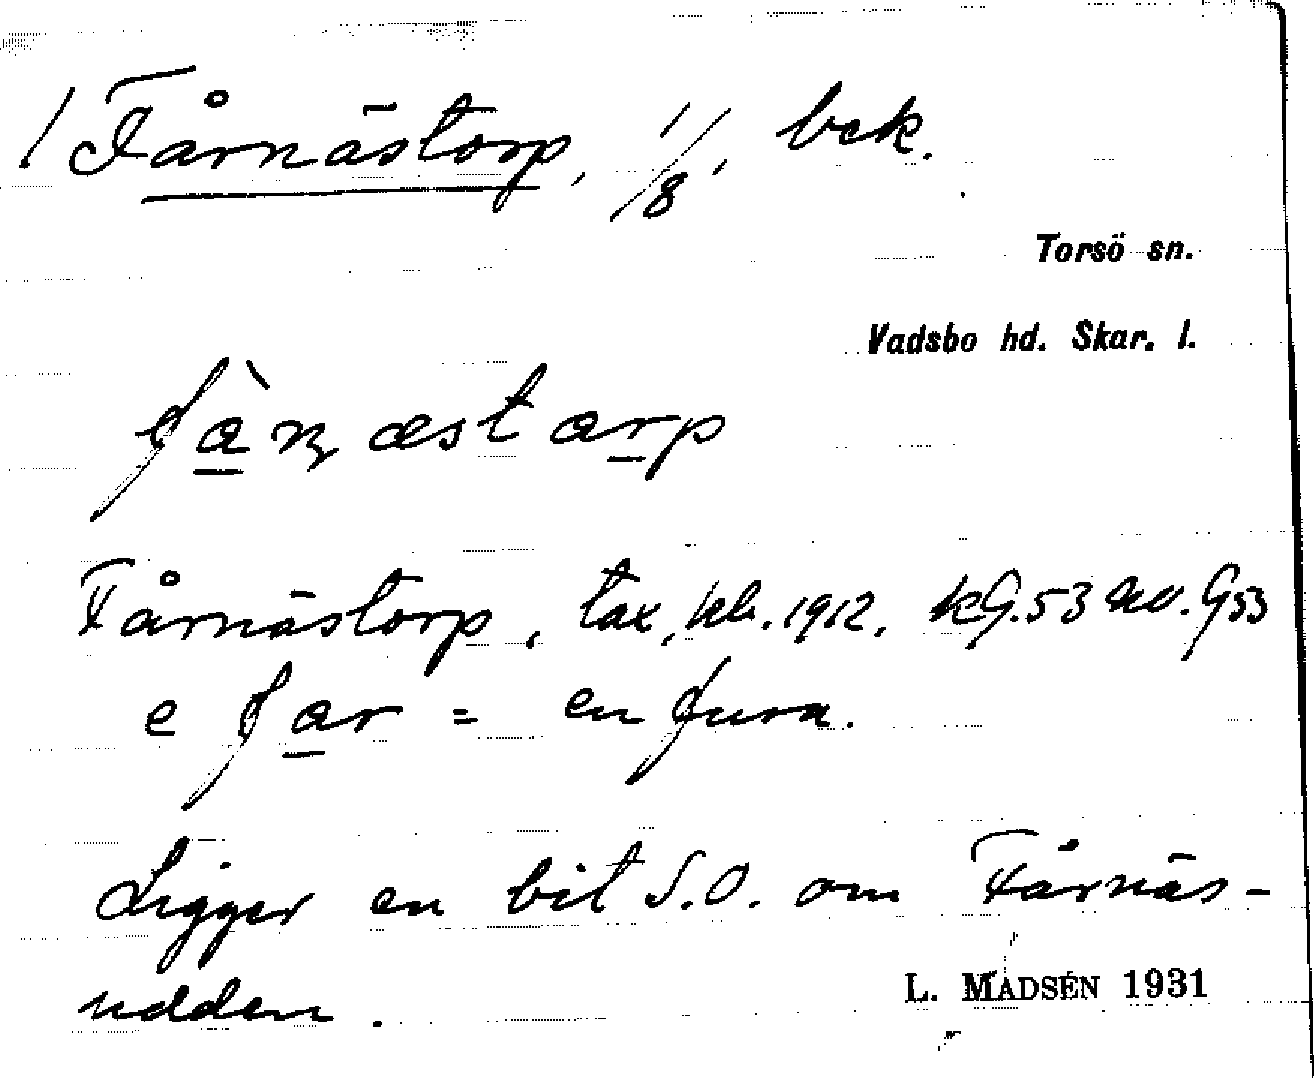 / Fårnästorp, 1/8, bek.
Torsö sn.
Vadsbo hd. Skar. l.
fàn̥æstarp
Fårnästorp, tax. 1912. kG.53 NV. G53
e far = en fura.
Ligger en bit S.O. om Fårnäs-
udden.
L. MADSÉN 1931